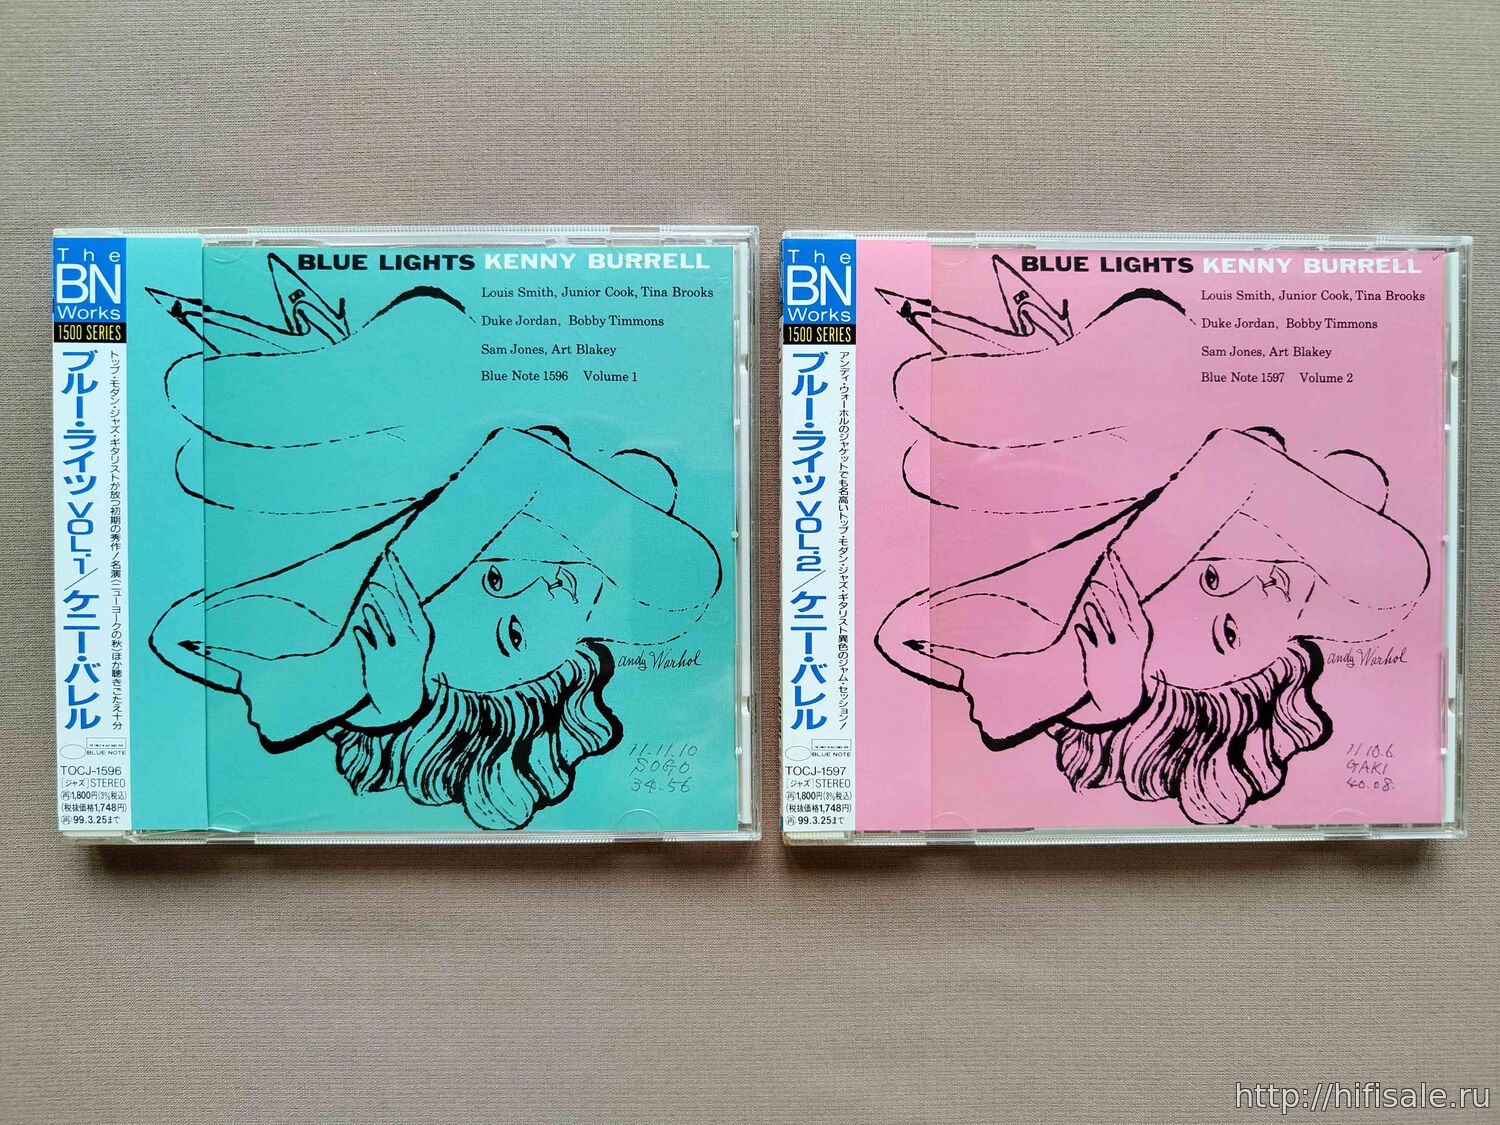 The
BN
Works
1500 SERIES
ブルー・ライツ VOL.1/ケニー・バレル
トップ・モダン・ジャズ・ギタリストが放つ初期の秀作!名演〈ニューヨークの秋〉ほか聴きごたえ十分
BLUE NOTE
TOCJ-1596
[ジャズ] STEREO
再1,800円(3%税込)
(税抜価格1,748円)
再99.3.25まで
BLUE LIGHTS KENNY BURRELL
Louis Smith, Junior Cook, Tina Brooks
Duke Jordan, Bobby Timmons
Sam Jones, Art Blakey
Blue Note 1596 Volume 1
andy Warhol
11.11.10
SOGO
34.56
The
BN
Works
1500 SERIES
ブルー・ライツ VOL.2/ケニー・バレル
アンディ・ウォーホルのジャケットでも名高いトップ・モダン・ジャズ・ギタリスト異色のジャム・セッション!
BLUE NOTE
TOCJ-1597
[ジャズ] STEREO
再1,800円(3%税込)
(税抜価格1,748円)
再99.3.25まで
BLUE LIGHTS KENNY BURRELL
Louis Smith, Junior Cook, Tina Brooks
Duke Jordan, Bobby Timmons
Sam Jones, Art Blakey
Blue Note 1597 Volume 2
andy Warhol
11.10.6
GAKI
40.08.
http://hifisale.ru